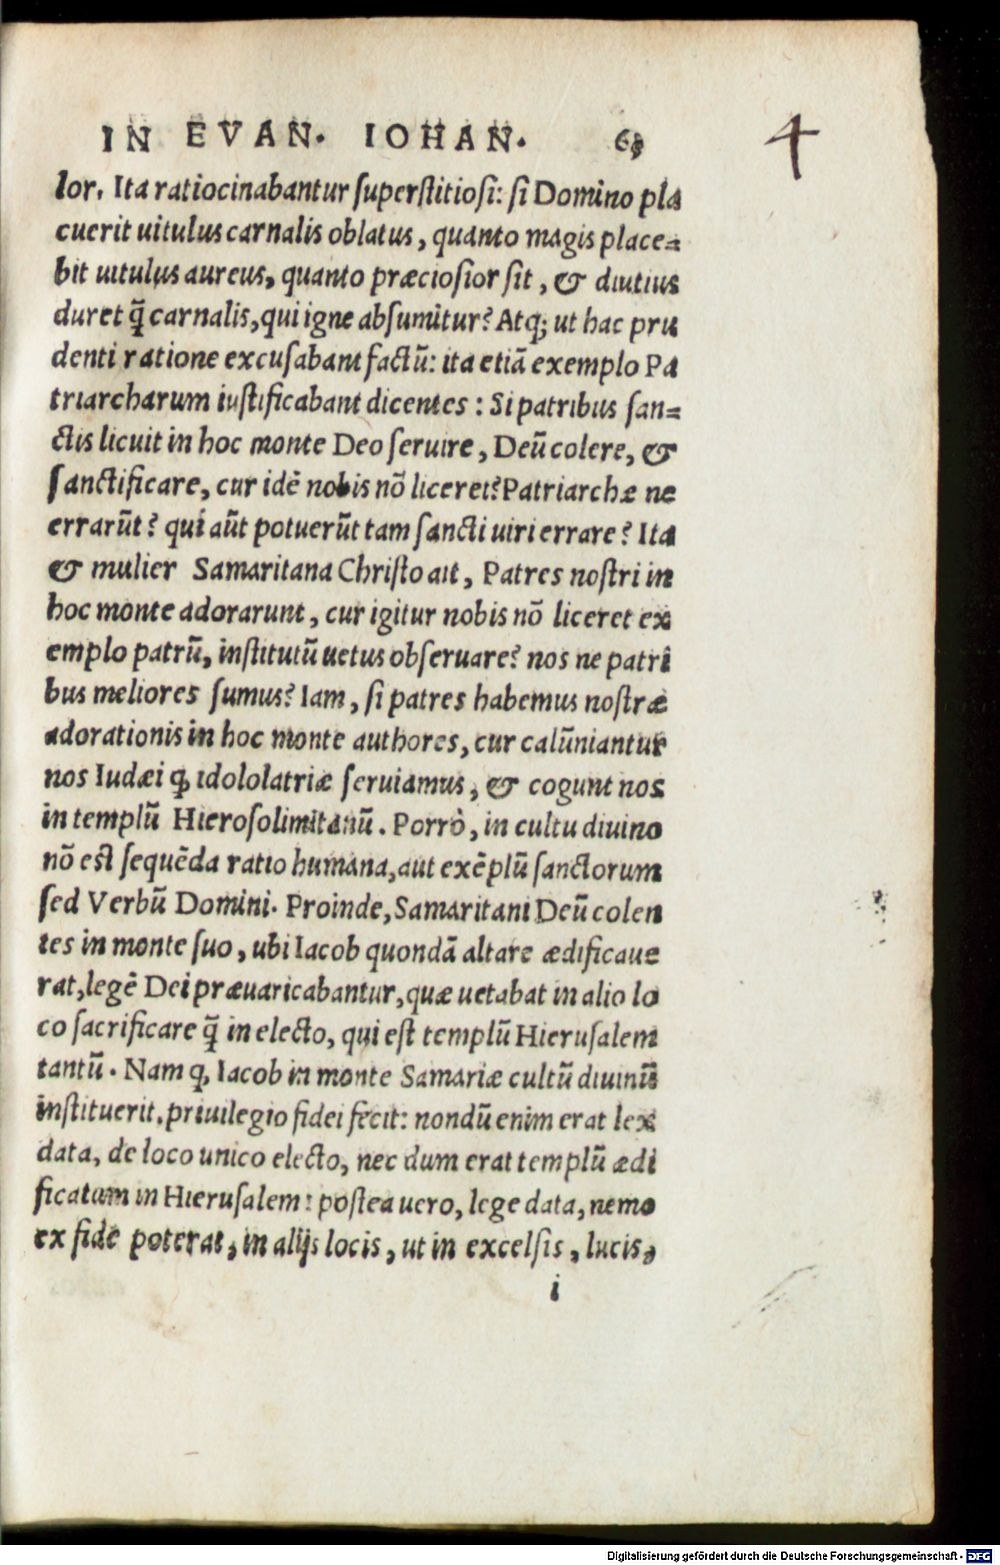 IN EVAN. IOHAN. 65
4
lor. Ita ratiocinabantur superstitiosi: si Domino pla
cuerit uitulus carnalis oblatus, quanto magis place=
bit uitulus aureus, quanto præciosior sit, & diutius
duret q̃ carnalis, qui igne absumitur? Atq; ut hac pru
denti ratione excusabant factũ: ita etiã exemplo Pa
triarcharum iustificabant dicentes: Si patribus san=
ctis licuit in hoc monte Deo seruire, Deũ colere, &
sanctificare, cur idẽ nobis nõ liceret? Patriarchæ ne
errarũt? qui aũt potuerũt tam sancti uiri errare? Ita
& mulier Samaritana Christo ait, Patres nostri in
hoc monte adorarunt, cur igitur nobis nõ liceret ex
emplo patrũ, institutũ uetus obseruare? nos ne patri
bus meliores sumus? Iam, si patres habemus nostræ
adorationis in hoc monte authores, cur calũniantur
nos Iudæi ꝙ idololatriæ seruiamus, & cogunt nos
in templũ Hierosolimitanũ. Porrò, in cultu diuino
nõ est sequẽda ratio humana, aut exẽplũ sanctorum
sed Verbũ Domini. Proinde, Samaritani Deũ colen
tes in monte suo, ubi Iacob quondã altare ædificaue
rat, legẽ Dei præuaricabantur, quæ uetabat in alio lo
co sacrificare q̃ in electo, qui est templũ Hierusalem
tantũ. Nam ꝙ Iacob in monte Samariæ cultũ diuinũ
instituerit, priuilegio fidei fecit: nondũ enim erat lex
data, de loco unico electo, nec dum erat templũ ædi
ficatum in Hierusalem: postea uero, lege data, nemo
ex fide poterat, in alijs locis, ut in excelsis, lucis,
i
Digitalisierung gefördert durch die Deutsche Forschungsgemeinschaft - DFG